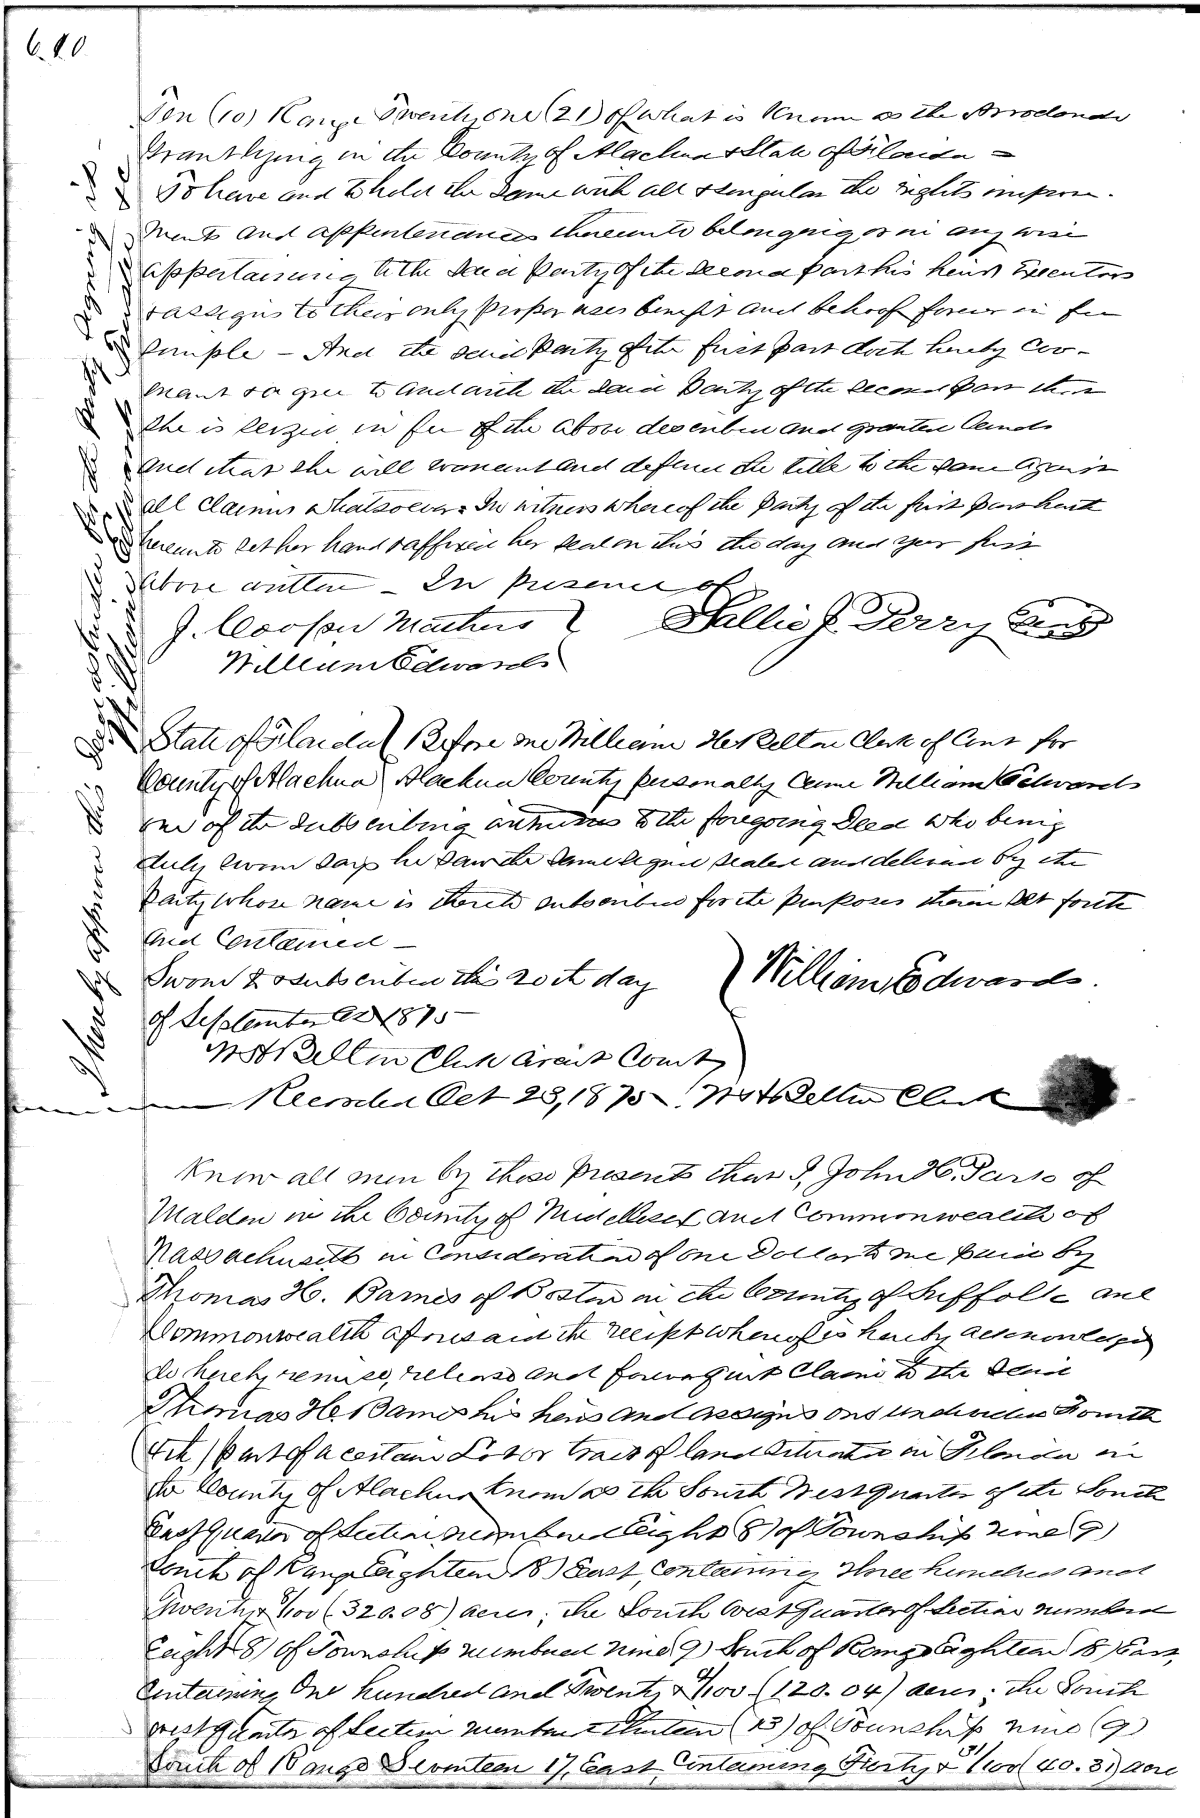 610
Ten (10) Range Twenty one (21) of what is Known as the Arrodondo
Grant lying in the County of Alachua & State of Florida =
To have and to hold the same with all & singular the rights improve-
ments and appurtenances thereunto belonging or in any wise
appertaining to the said party of the second part his heirs Executors
& assigns to their only proper uses benefit and behoof forever in fee
simple - And the said party of the first part doth hereby Cov-
enant & agree to and with the said Party of the second part that
she is seized in fee of the above described and granted lands
and that she will warrant and defend the title to the same against
all claims whatsoever = In witness whereof the party of the first part hath
hereunto set her hand & affixed her seal on this the day and year first
above written - In presence of
J. Cooper Mathers } Sallie J. Perry Seal
William Edwards
I hereby approve this Deed as trustee for the party signing it -
William Edwards Trustee &c
State of Florida } Before me William H. Belton Clerk of Court for
County of Alachua } Alachua County personally came William Edwards
one of the subscribing witnesses to the foregoing Deed who being
duly sworn says he saw the same signed sealed and delivered by the
party whose name is thereto subscribed for the purposes therein set forth
and Contained -
Sworn to & subscribed this 20th day } William Edwards.
of September AD 1875
W H Belton Clerk Circuit Court
Recorded Oct 23, 1875 W H Belton Clerk
Know all men by these presents that I, John H. Parso of
Malden in the County of Middlesex and Commonwealth of
Massachusetts in consideration of one Dollar to me paid by
Thomas H. Barnes of Boston in the County of Suffolk and
Commonwealth aforesaid the receipt whereof is hereby acknowledged
do hereby remise, release and forever quit Claim to the said
Thomas H. Barnes his heirs and assigns one undivided Fourth
(4th) part of a certain Lot or tract of land situated in Florida in
the County of Alachua known as the South West quarter of the South
East quarter of Section numbered Eight (8) of Township nine (9)
South of Range Eighteen (18) East, containing three hundred and
Twenty & 8/100 (320.08) acres; the South West quarter of Section numbered
Eight (8) of Township numbered nine (9) South of Range Eighteen (18) East,
containing One hundred and Twenty & 4/100 (120.04) acres; the South
west quarter of Section numbered thirteen (13) of Township nine (9)
South of Range Seventeen 17, East, Containing Forty & 31/100 (40.31) acre